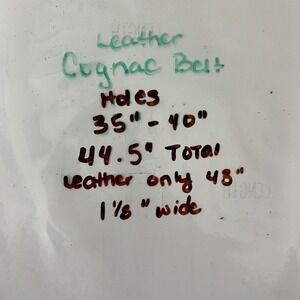 Leather
Cognac Belt
Holes
35" - 40"
44.5" Total
Leather only 43"
1 1/8" wide